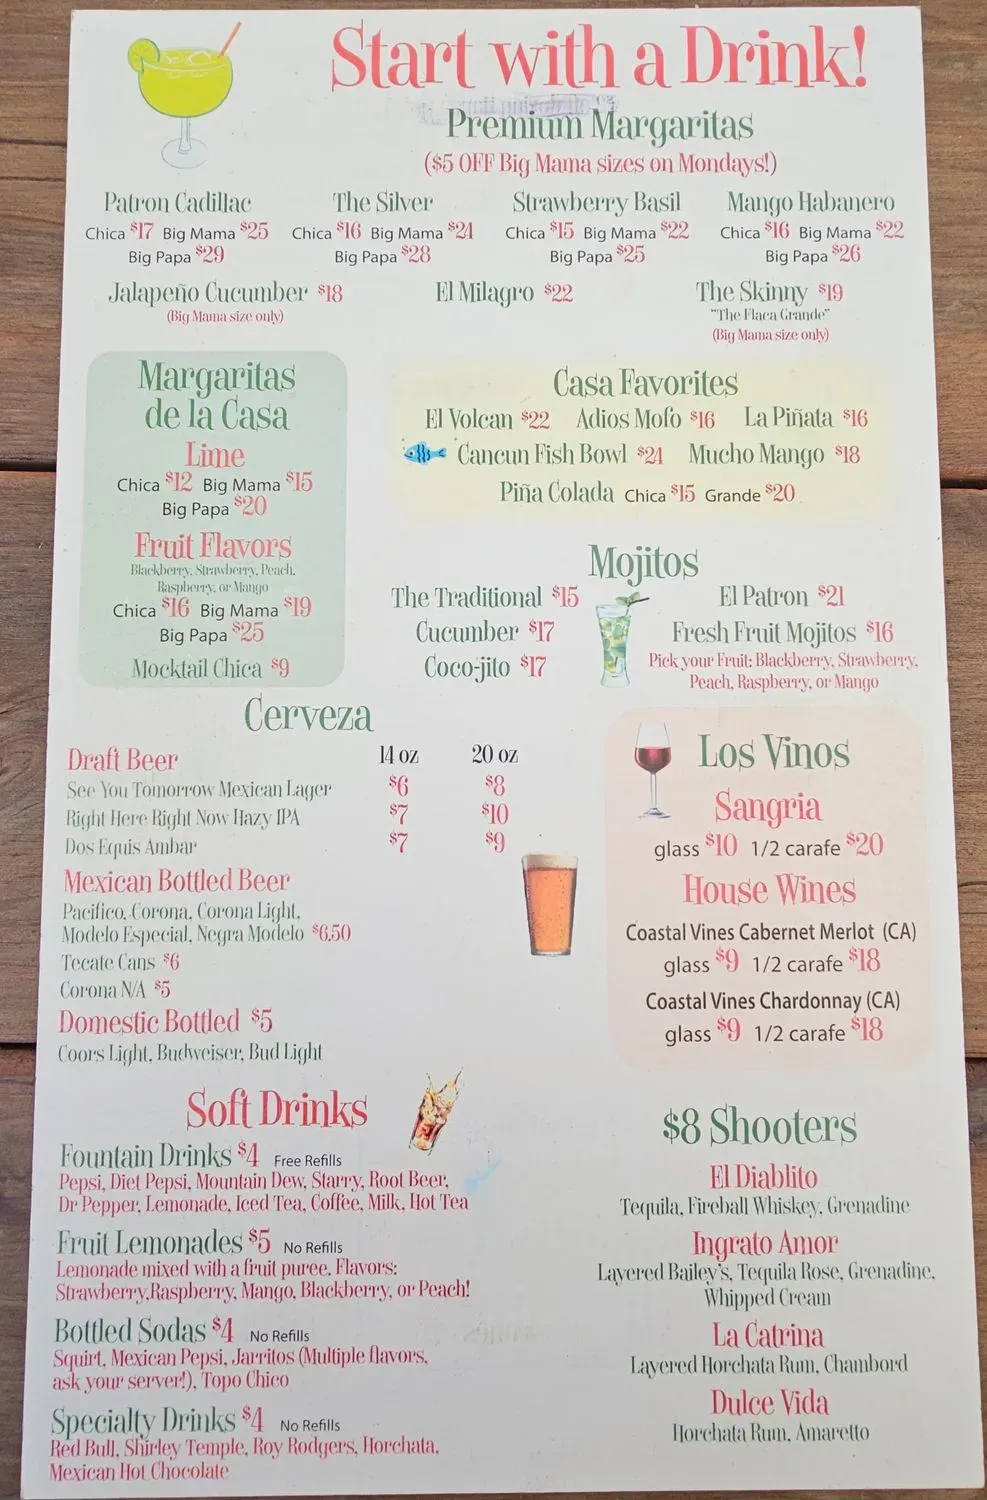 Start with a Drink!
Premium Margaritas
($5 OFF Big Mama sizes on Mondays!)
Patron Cadillac
Chica $17 Big Mama $25
Big Papa $29
The Silver
Chica $16 Big Mama $24
Big Papa $28
Strawberry Basil
Chica $15 Big Mama $22
Big Papa $25
Mango Habanero
Chica $16 Big Mama $22
Big Papa $26
Jalapeño Cucumber $18
(Big Mama size only)
El Milagro $22
The Skinny $19
"The Flaca Grande"
(Big Mama size only)
Margaritas
de la Casa
Lime
Chica $12 Big Mama $15
Big Papa $20
Fruit Flavors
Blackberry, Strawberry, Peach,
Raspberry, or Mango
Chica $16 Big Mama $19
Big Papa $25
Mocktail Chica $9
Casa Favorites
El Volcan $22 Adios Mofo $16 La Piñata $16
Cancun Fish Bowl $24 Mucho Mango $18
Piña Colada Chica $15 Grande $20
Mojitos
The Traditional $15
Cucumber $17
Coco-jito $17
El Patron $21
Fresh Fruit Mojitos $16
Pick your Fruit: Blackberry, Strawberry,
Peach, Raspberry, or Mango
Cerveza
Draft Beer 14 oz 20 oz
See You Tomorrow Mexican Lager $6 $8
Right Here Right Now Hazy IPA $7 $10
Dos Equis Ambar $7 $9
Mexican Bottled Beer
Pacifico, Corona, Corona Light,
Modelo Especial, Negra Modelo $6.50
Tecate Cans $6
Corona N/A $5
Domestic Bottled $5
Coors Light, Budweiser, Bud Light
Los Vinos
Sangria
glass $10 1/2 carafe $20
House Wines
Coastal Vines Cabernet Merlot (CA)
glass $9 1/2 carafe $18
Coastal Vines Chardonnay (CA)
glass $9 1/2 carafe $18
Soft Drinks
Fountain Drinks $4 Free Refills
Pepsi, Diet Pepsi, Mountain Dew, Starry, Root Beer,
Dr Pepper, Lemonade, Iced Tea, Coffee, Milk, Hot Tea
Fruit Lemonades $5 No Refills
Lemonade mixed with a fruit puree. Flavors:
Strawberry,Raspberry, Mango, Blackberry, or Peach!
Bottled Sodas $4 No Refills
Squirt, Mexican Pepsi, Jarritos (Multiple flavors,
ask your server!), Topo Chico
Specialty Drinks $4 No Refills
Red Bull, Shirley Temple, Roy Rodgers, Horchata,
Mexican Hot Chocolate
$8 Shooters
El Diablito
Tequila, Fireball Whiskey, Grenadine
Ingrato Amor
Layered Bailey's, Tequila Rose, Grenadine,
Whipped Cream
La Catrina
Layered Horchata Rum, Chambord
Dulce Vida
Horchata Rum, Amaretto